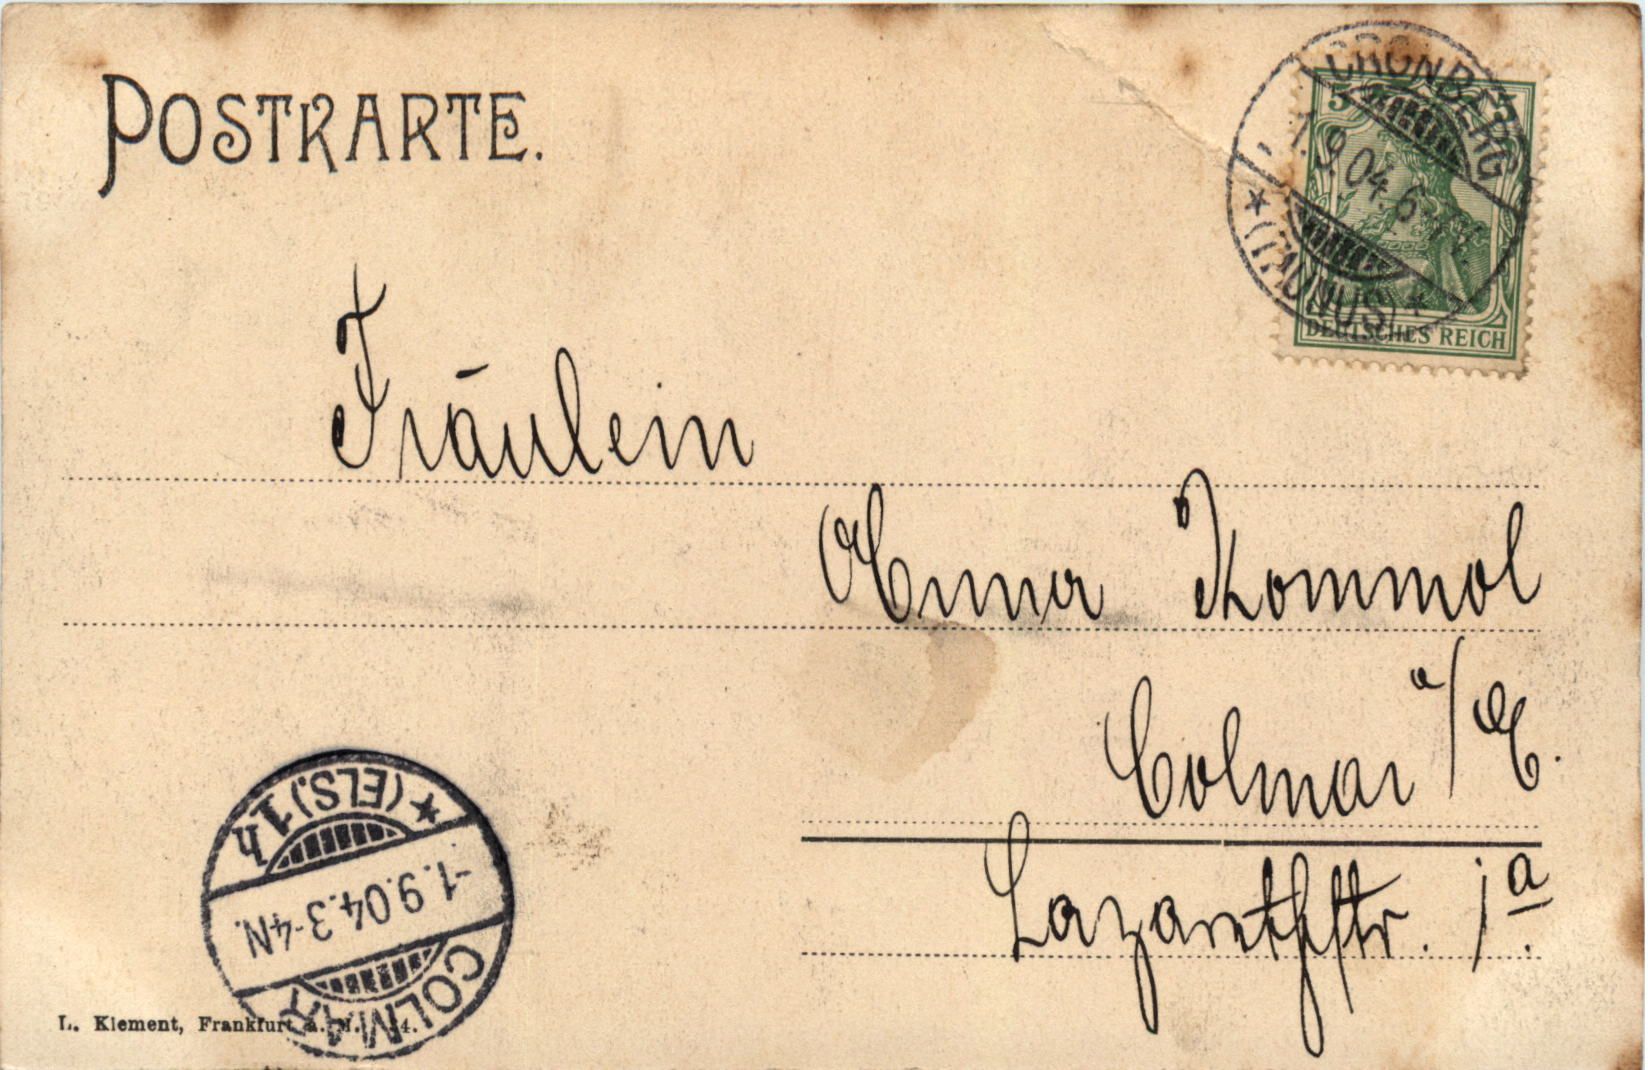 POSTKARTE.
CRONBERG
1.9.04. 6-7
* (TAUNUS) *
5 5
DEUTSCHES REICH
Fräulein
Anna Kommol
Colmar a/E.
Lazarethstr. 1a.
* (ELS.) 1h
-1.9.04.3-4N.
COLMAR
L. Klement, Frankfurt a. M.